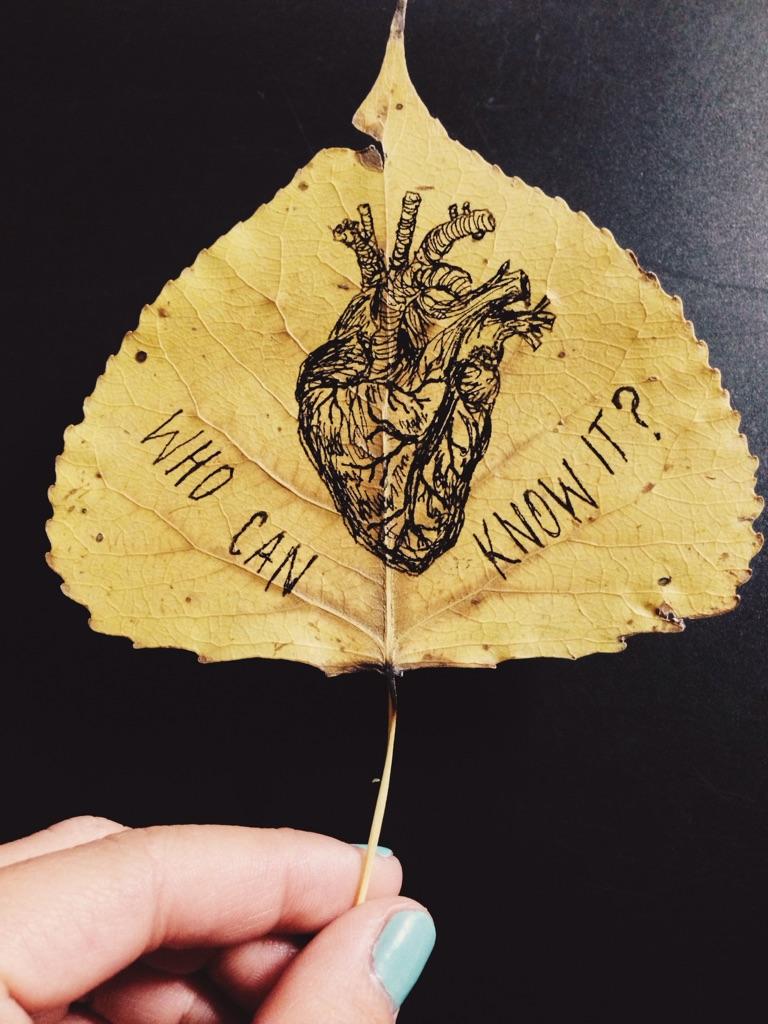 WHO CAN
KNOW IT?